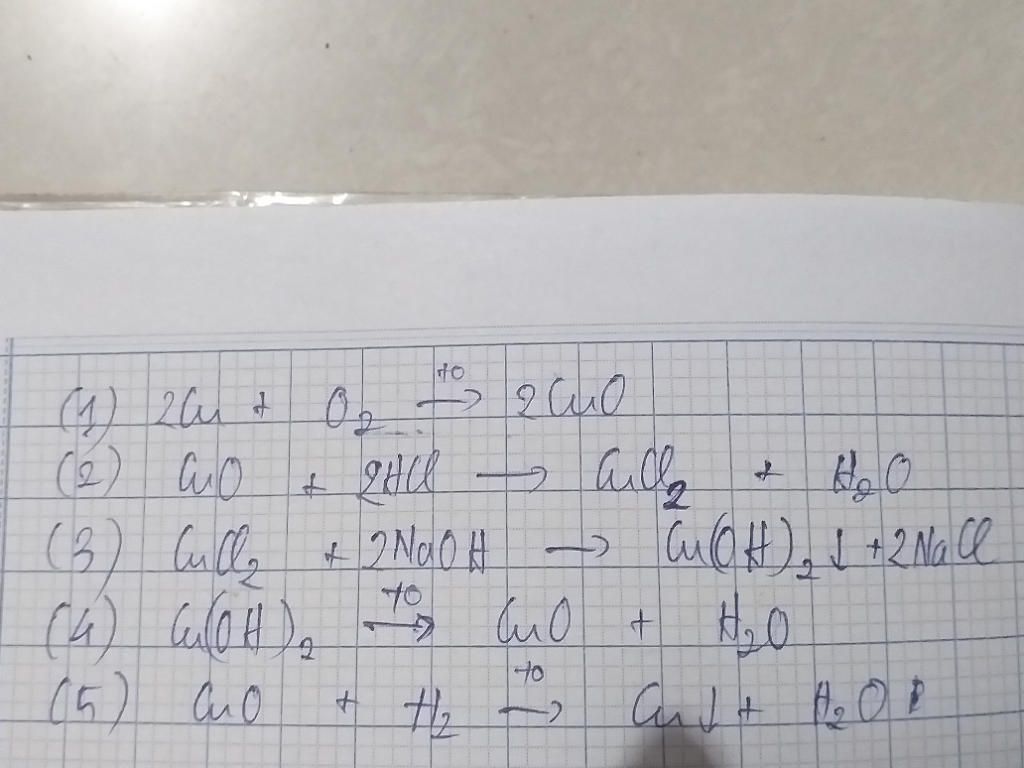 (1) 2Cu + O₂ —t⁰→ 2CuO
(2) CuO + 2HCl → CuCl₂ + H₂O
(3) CuCl₂ + 2NaOH → Cu(OH)₂↓ + 2NaCl
(4) Cu(OH)₂ —t⁰→ CuO + H₂O
(5) CuO + H₂ —t⁰→ Cu↓ + H₂O